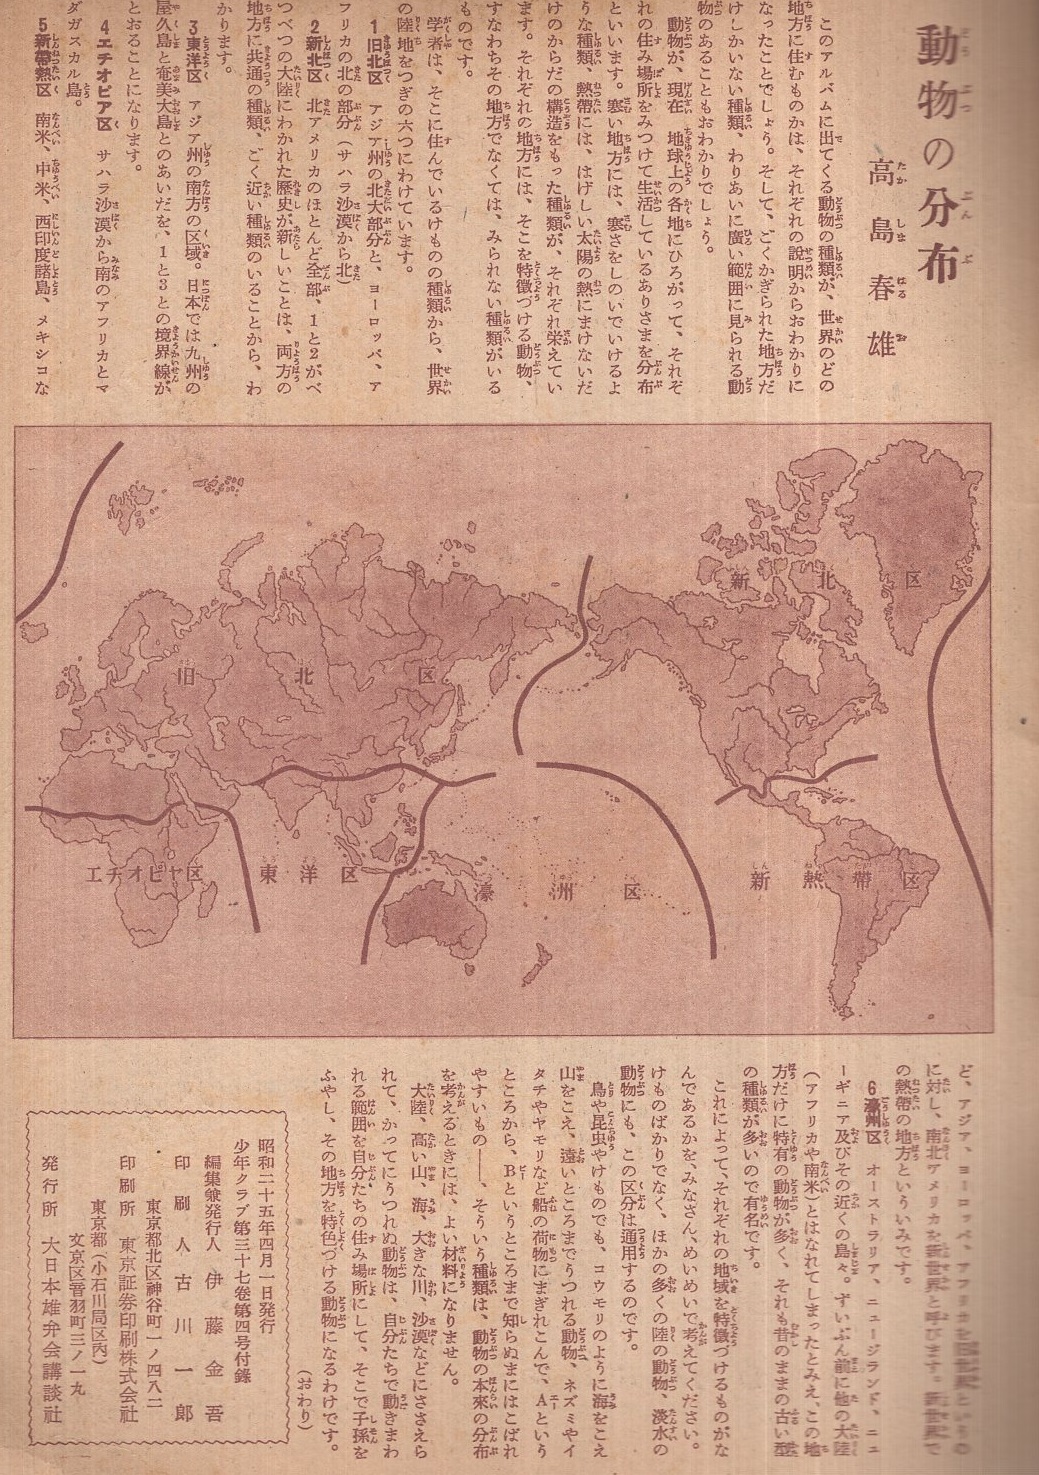 動物の分布
高島春雄
このアルバムに出てくる動物の種類が、世界のどの
地方に住むものかは、それぞれの説明からおわかりに
なったことでしょう。そして、ごくかぎられた地方だ
けしかいない種類、わりあいに廣い範囲に見られる動
物のあることもおわかりでしょう。
動物が、現在 地球上の各地にひろがって、それぞ
れの住み場所をみつけて生活しているありさまを分布
といいます。寒い地方には、寒さをしのいでいけるよ
うな種類、熱帶には、はげしい太陽の熱にまけないだ
けのからだの構造をもった種類が、それぞれ栄えてい
ます。それぞれの地方には、そこを特徴づける動物、
すなわちその地方でなくては、みられない種類がいる
ものです。
学者は、そこに住んでいるけものの種類から、世界
の陸地をつぎの六つにわけています。
1 旧北区 アジア州の北大部分と、ヨーロッパ、ア
フリカの北の部分（サハラ沙漠から北）
2 新北区 北アメリカのほとんど全部、1と2がべ
つべつの大陸にわかれた歴史が新しいことは、両方の
地方に共通の種類、ごく近い種類のいることから、わ
かります。
3 東洋区 アジア州の南方の区域。日本では九州の
屋久島と奄美大島とのあいだを、1と3との境界線が
とおることになります。
4 エチオピア区 サハラ沙漠から南のアフリカとマ
ダガスカル島。
5 新帶熱区 南米、中米、西印度諸島、メキシコな
新北区
旧北区
エチオピヤ区
東洋区
濠洲区
新熱帶区
ど、アジア、ヨーロッパ、アフリカを旧世界というの
に対し、南北アメリカを新世界と呼びます。新世界で
の熱帶の地方といういみです。
6 濠州区 オーストラリア、ニュージランド、ニュ
ーギニア及びその近くの島々。ずいぶん前に他の大陸
（アフリカや南米）とはなれてしまったとみえ、この地
方だけに特有の動物が多く、それも昔のままの古い型
の種類が多いので有名です。
これによって、それぞれの地域を特徴づけるものがな
んであるかを、みなさん、めいめいで考えてください。
けものばかりでなく、ほかの多くの陸の動物、淡水の
動物にも、この区分は通用するのです。
鳥や昆虫やけものでも、コウモリのように海をこえ
山をこえ、遠いところまでうつれる動物、ネズミやイ
タチやヤモリなど船の荷物にまぎれこんで、Aという
ところから、Bというところまで知らぬまにはこばれ
やすいもの――、そういう種類は、動物の本來の分布
を考えるときには、よい材料になりません。
大陸、高い山、海、大きな川、沙漠などにささえら
れて、かってにうつれぬ動物は、自分たちで動きまわ
れる範囲を自分たちの住み場所にして、そこで子孫を
ふやし、その地方を特色づける動物になるわけです。
（おわり）
昭和二十五年四月一日発行
少年クラブ第三十七卷第四号付錄
編集兼発行人 伊藤金吾
印刷人 古川一郎
東京都北区神谷町一ノ四八二
印刷所 東京証券印刷株式会社
東京都（小石川局区内）
文京区音羽町三ノ一九
発行所 大日本雄弁会講談社